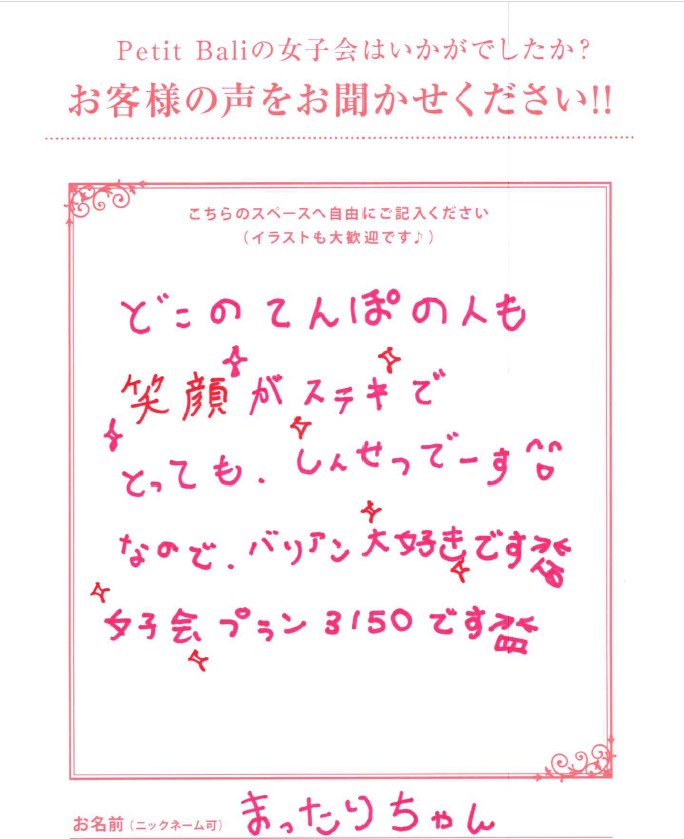 Petit Baliの女子会はいかがでしたか?
お客様の声をお聞かせください!!
こちらのスペースへ自由にご記入ください
(イラストも大歓迎です♪)
どこのてんぽの人も
笑顔がステキで
とっても、しんせつでーす
なので、バリアン大好きです
女子会プラン3150です
お名前(ニックネーム可) まったりちゃん